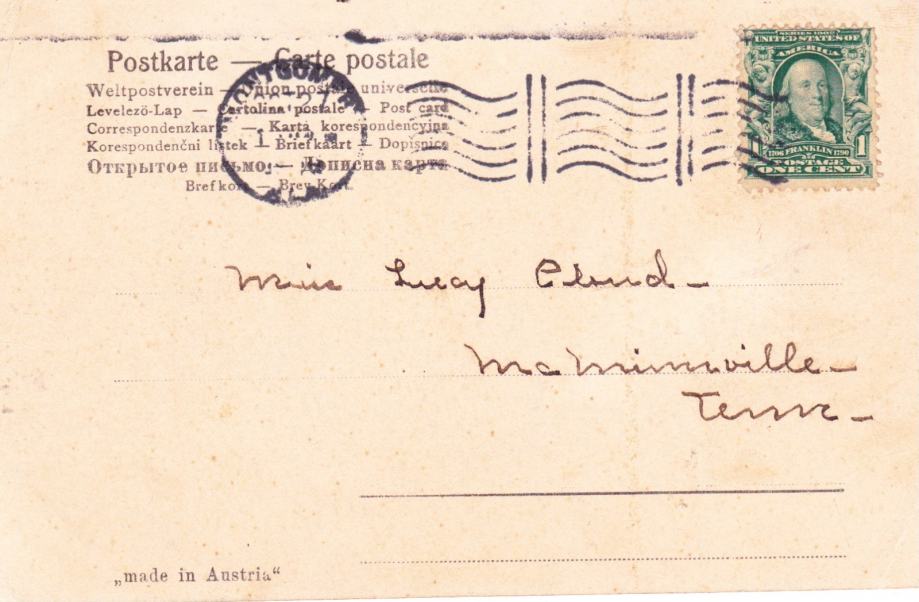 Postkarte — Carte postale
Weltpostverein — Union postale universelle
Levelező-Lap — Cartolina postale — Post card
Correspondenzkarte — Karta korespondencyjna
Korespondenční lístek — Briefkaart — Dopisnica
Открытое письмо. — Дописна карта
Brefkort — Brev-Kort
MONTGOMERY
SERIES 1902
UNITED STATES OF
AMERICA
1706 FRANKLIN 1790
POSTAGE
1 ONE CENT 1
Miss Lucy Cloud —
McMinnville —
Tenn —
„made in Austria“